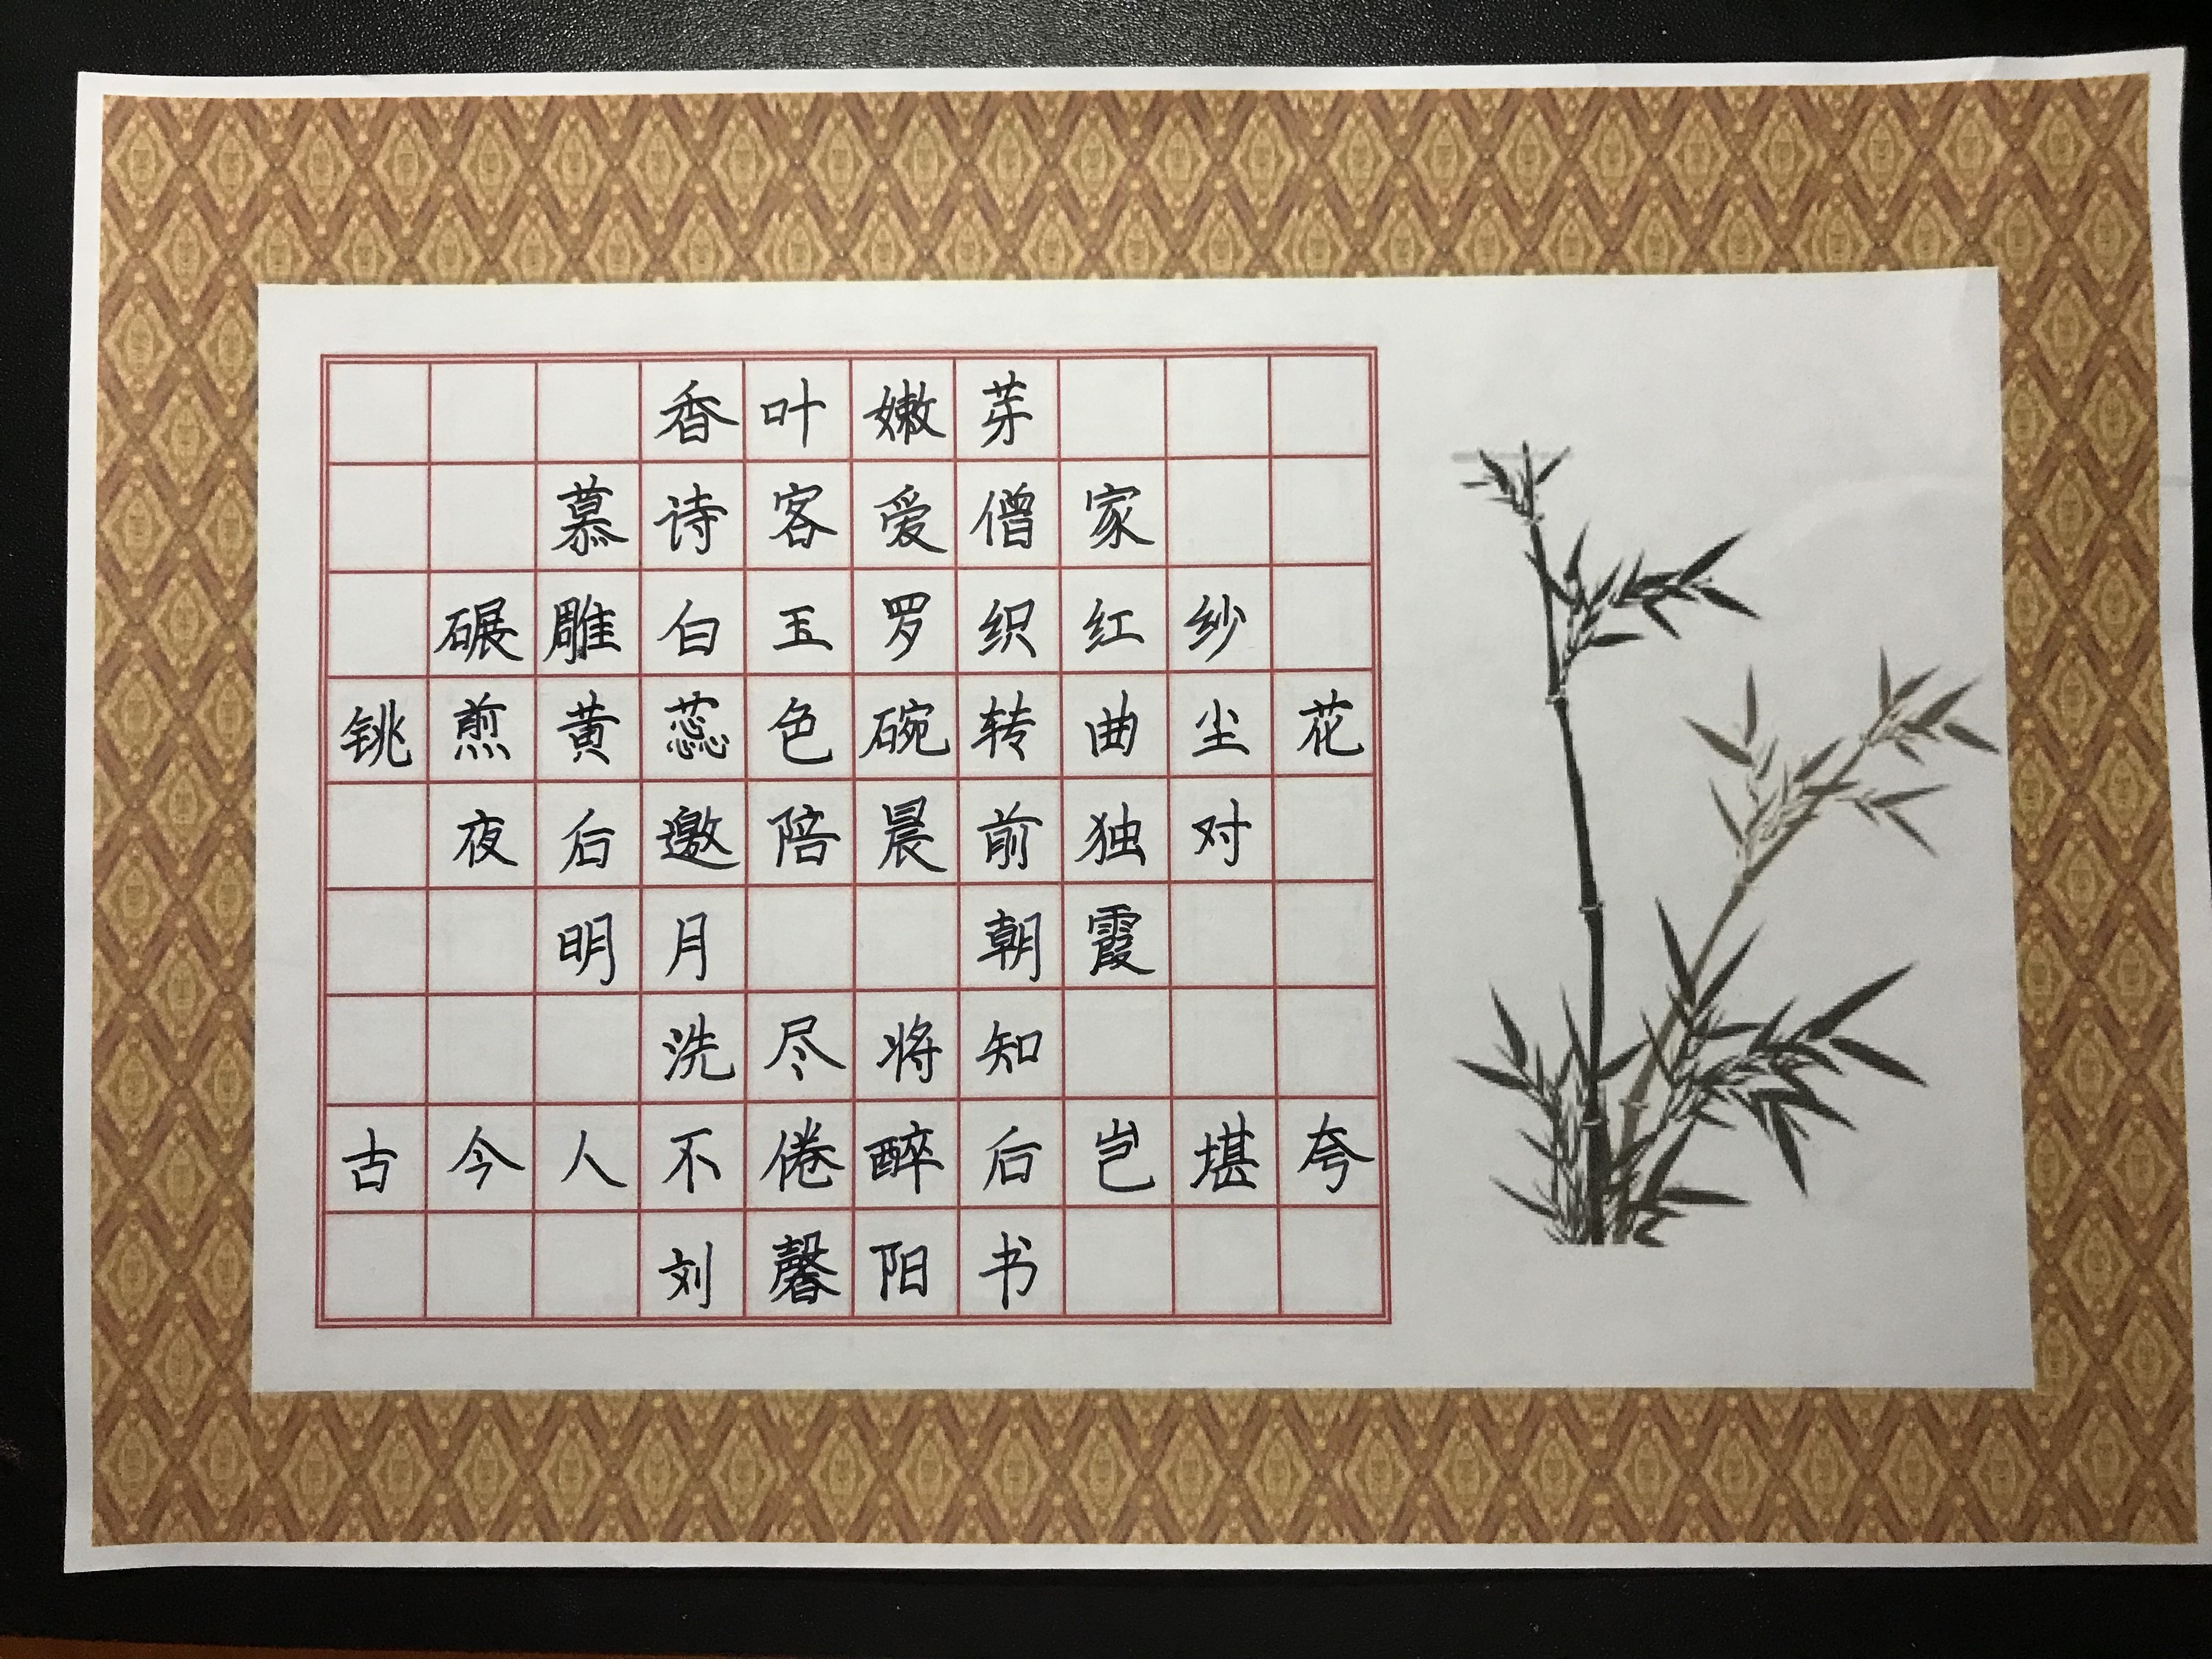 香叶嫩芽
慕诗客爱僧家
碾雕白玉罗织红纱
铫煎黄蕊色碗转曲尘花
夜后邀陪晨前独对
明月 朝霞
洗尽将知
古今人不倦醉后岂堪夸
刘馨阳书